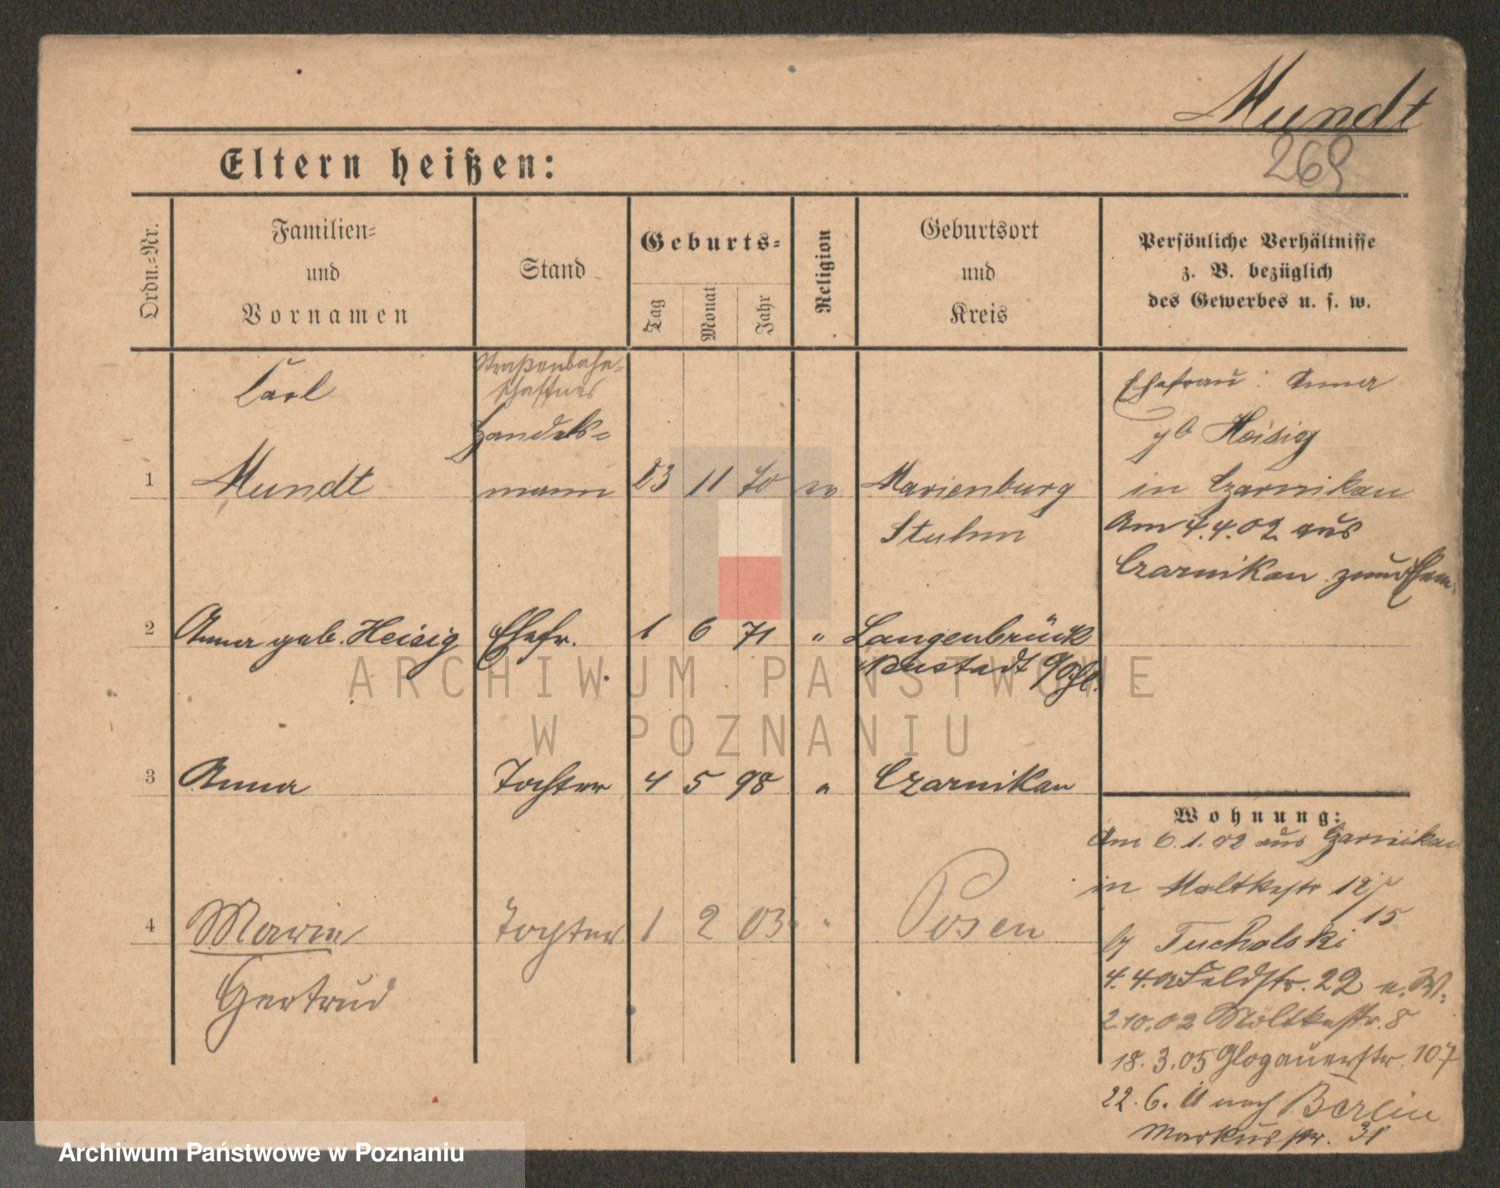 Mundt
269
Eltern heißen:
Ordn.-Nr.
Familien-
und
Vornamen
Stand
Geburts-
Tag
Monat
Jahr
Religion
Geburtsort
und
Kreis
Persönliche Verhältnisse
z. B. bezüglich
des Gewerbes u. s. w.
Straßenbahn-
schaffner
Carl
Handels-
1 Mundt mann 23 11 70 ev Marienburg
Stuhm
Ehefrau: Anna
gb Heisig
in Czarnikau
Am 4.4.02 aus
Czarnikau
2 Anna geb. Heisig Ehefr. 1 6 71 " Langenbrück
Neustadt
3 Anna Tochter 4 5 98 " Czarnikau
4 Marie Tochter 1 2 03 " Posen
Gertrud
Wohnung:
Am 6.1.02 aus Czarnikau
in Moltkestr
15
Tucholski
4.4. Feldstr. 22
2.10.02 Moltkestr. 8
18.3.05 Glogauerstr. 107
22.6.11 nach Berlin
Markusstr. 31
ARCHIWUM PAŃSTWOWE
W POZNANIU
Archiwum Państwowe w Poznaniu